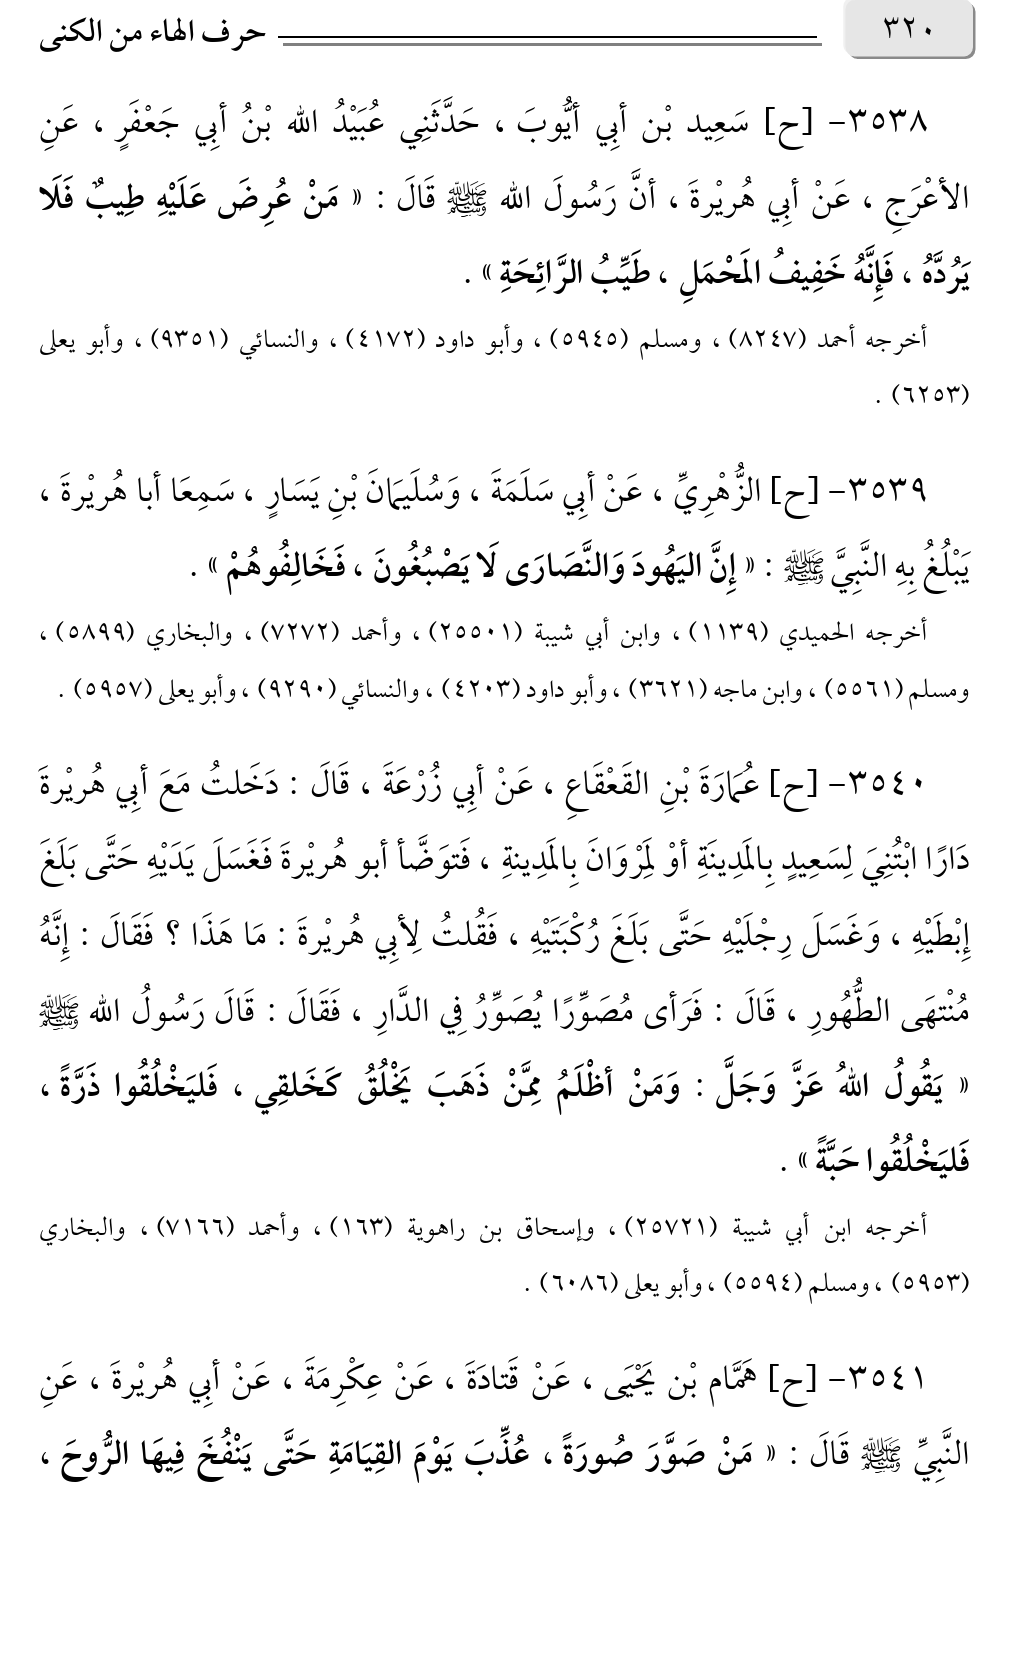 ٣٢٠
حرف الهاء من الكنى
٣٥٣٨- [ح] سَعِيد بْن أبِي أيُّوبَ ، حَدَّثَنِي عُبَيْدُ الله بْنُ أبِي جَعْفَرٍ ، عَنِ
الأعْرَجِ ، عَنْ أبِي هُريْرةَ ، أنَّ رَسُولَ الله ﷺ قَالَ : « مَنْ عُرِضَ عَلَيْهِ طِيبٌ فَلَا
يَرُدَّهُ ، فَإِنَّهُ خَفِيفُ المَحْمَلِ ، طَيِّبُ الرَّائِحَةِ » .
أخرجه أحمد (٨٢٤٧) ، ومسلم (٥٩٤٥) ، وأبو داود (٤١٧٢) ، والنسائي (٩٣٥١) ، وأبو يعلى
(٦٢٥٣) .
٣٥٣٩- [ح] الزُّهْرِيِّ ، عَنْ أبِي سَلَمَةَ ، وَسُلَيمَانَ بْنِ يَسَارٍ ، سَمِعَا أبا هُريْرةَ ،
يَبْلُغُ بِهِ النَّبِيَّ ﷺ : « إِنَّ اليَهُودَ وَالنَّصَارَى لَا يَصْبُغُونَ ، فَخَالِفُوهُمْ » .
أخرجه الحميدي (١١٣٩) ، وابن أبي شيبة (٢٥٥٠١) ، وأحمد (٧٢٧٢) ، والبخاري (٥٨٩٩) ،
ومسلم (٥٥٦١) ، وابن ماجه (٣٦٢١) ، وأبو داود (٤٢٠٣) ، والنسائي (٩٢٩٠) ، وأبو يعلى (٥٩٥٧) .
٣٥٤٠- [ح] عُمَارَةَ بْنِ القَعْقَاعِ ، عَنْ أبِي زُرْعَةَ ، قَالَ : دَخَلتُ مَعَ أبِي هُريْرةَ
دَارًا ابْتُنِيَ لِسَعِيدٍ بِالمَدِينَةِ أوْ لِمَرْوَانَ بِالمَدِينةِ ، فَتوَضَّأ أبو هُريْرةَ فَغَسَلَ يَدَيْهِ حَتَّى بَلَغَ
إِبْطَيْهِ ، وَغَسَلَ رِجْلَيْهِ حَتَّى بَلَغَ رُكْبَتَيْهِ ، فَقُلتُ لِأبِي هُريْرةَ : مَا هَذَا ؟ فَقَالَ : إِنَّهُ
مُنْتهَى الطُّهُورِ ، قَالَ : فَرَأى مُصَوِّرًا يُصَوِّرُ فِي الدَّارِ ، فَقَالَ : قَالَ رَسُولُ الله ﷺ
« يَقُولُ اللهُ عَزَّ وَجَلَّ : وَمَنْ أظْلَمُ مِمَّنْ ذَهَبَ يَخْلُقُ كَخَلقِي ، فَليَخْلُقُوا ذَرَّةً ،
فَليَخْلُقُوا حَبَّةً » .
أخرجه ابن أبي شيبة (٢٥٧٢١) ، وإسحاق بن راهوية (١٦٣) ، وأحمد (٧١٦٦) ، والبخاري
(٥٩٥٣) ، ومسلم (٥٥٩٤) ، وأبو يعلى (٦٠٨٦) .
٣٥٤١- [ح] هَمَّام بْن يَحَيْيَى ، عَنْ قَتادَةَ ، عَنْ عِكْرِمَةَ ، عَنْ أبِي هُريْرةَ ، عَنِ
النَّبِيِّ ﷺ قَالَ : « مَنْ صَوَّرَ صُورَةً ، عُذِّبَ يَوْمَ القِيَامَةِ حَتَّى يَنْفُخَ فِيهَا الرُّوحَ ،